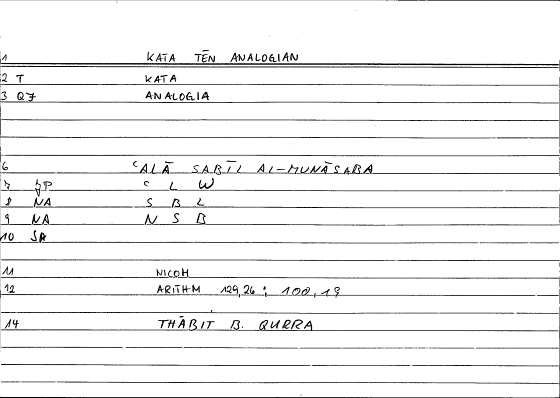 1 KATA TĒN ANALOGIAN
2 T KATA
3 Q7 ANALOGIA
6 ʿALĀ SABĪL AL-MUNĀSABA
7 JP ʿ L W
8 NA S B L
9 NA N S B
10 SA
11 NICOM
12 ARITHM 129,26 ; 100,19
14 THĀBIT B. QURRA